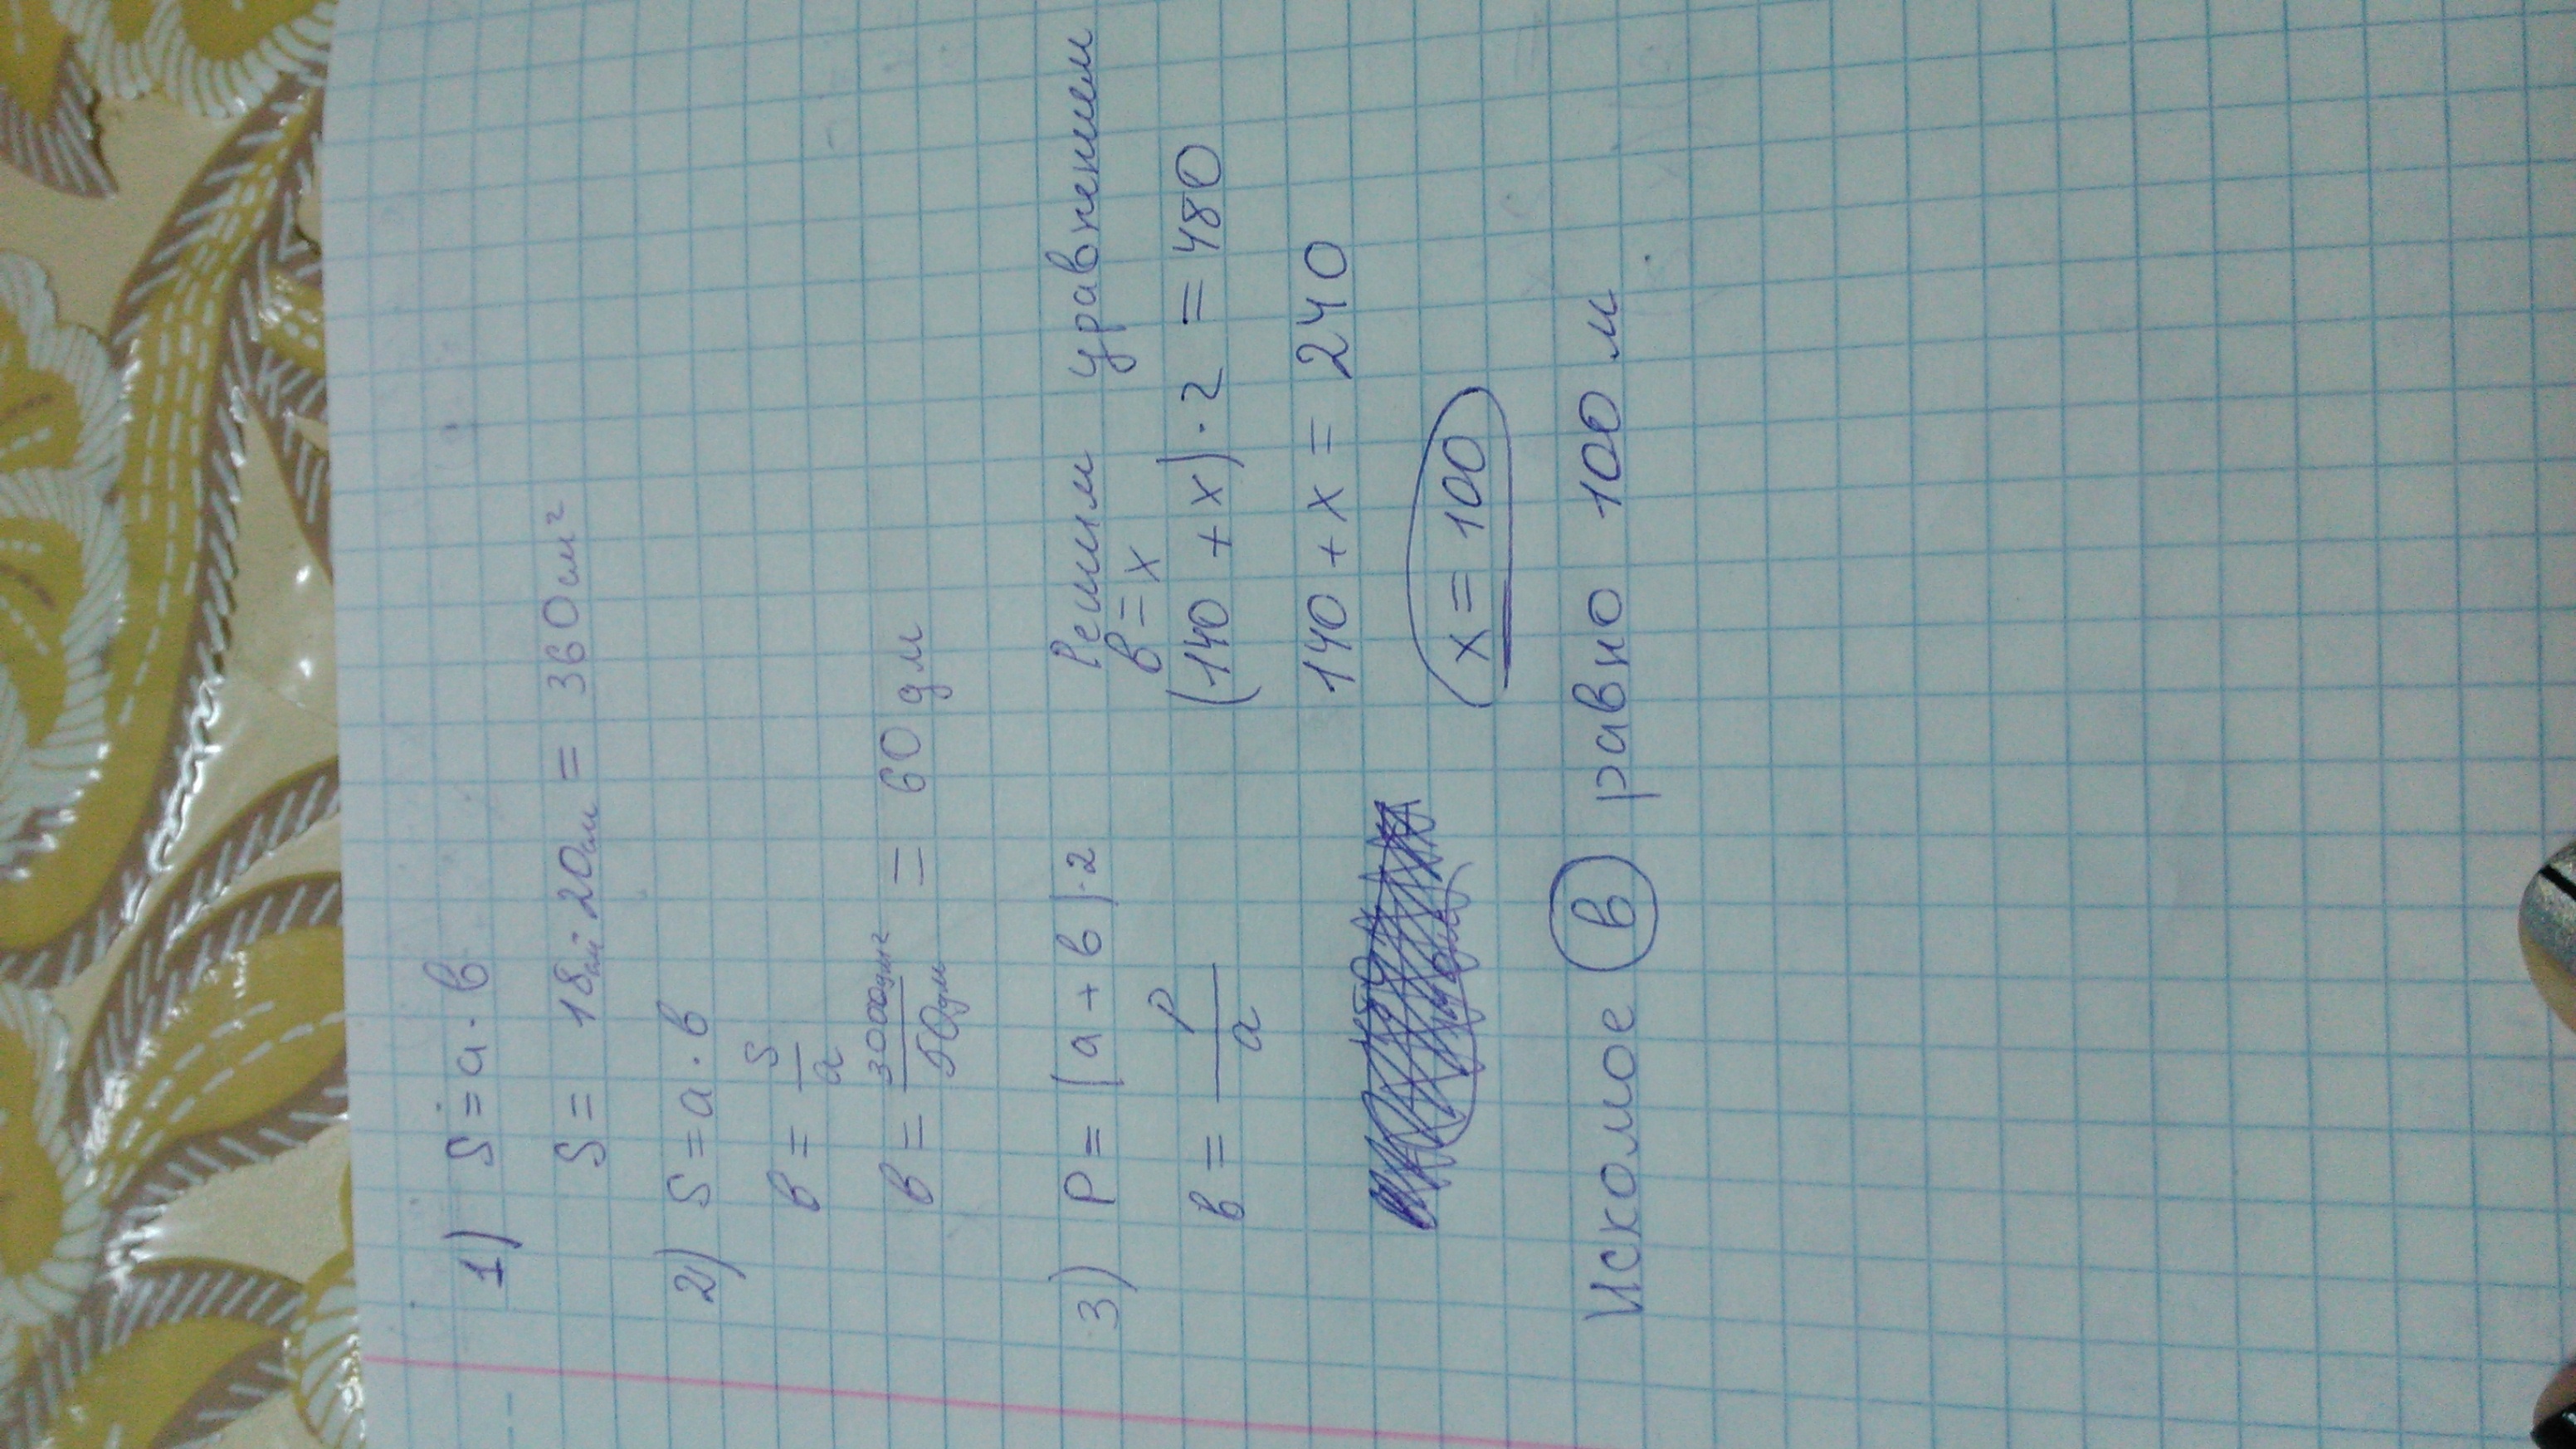 1) S = a · в
S = 18см · 20см = 360см²
2) S = a · в
в = S/a
в = 3000дм²/50дм = 60 дм
3) P = (a + в) · 2
в = P/a
Решим уравнением
в = x
(140 + x) · 2 = 480
140 + x = 240
x = 100
Искомое в равно 100 м